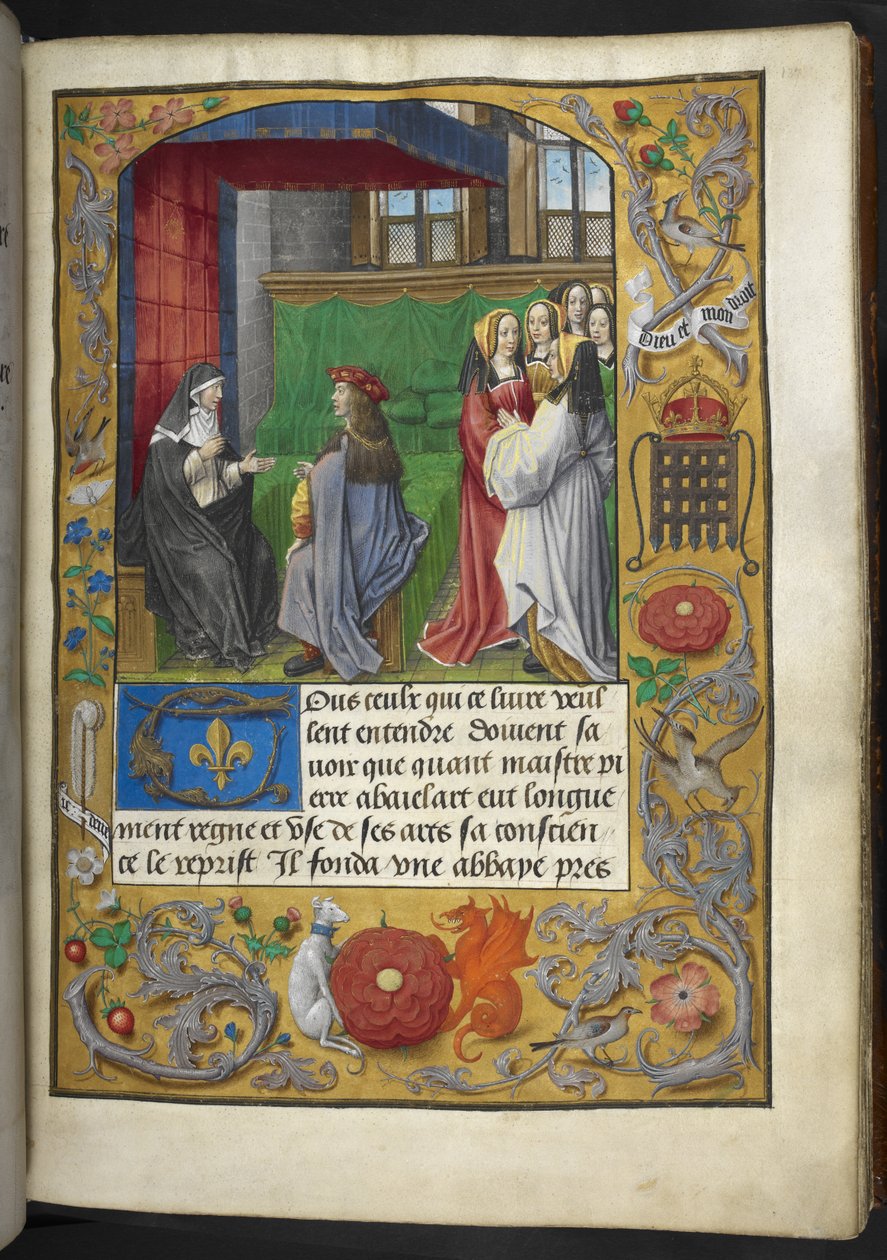 137
Dieu et mon droit
ous ceulx qui ce liure veul
lent entendre doiuent sa
uoir que quant maistre pi
erre abaielart eut longue
ment regne et vse de ses ars sa conscien
ce le reprist Il fonda vne abbaye pres